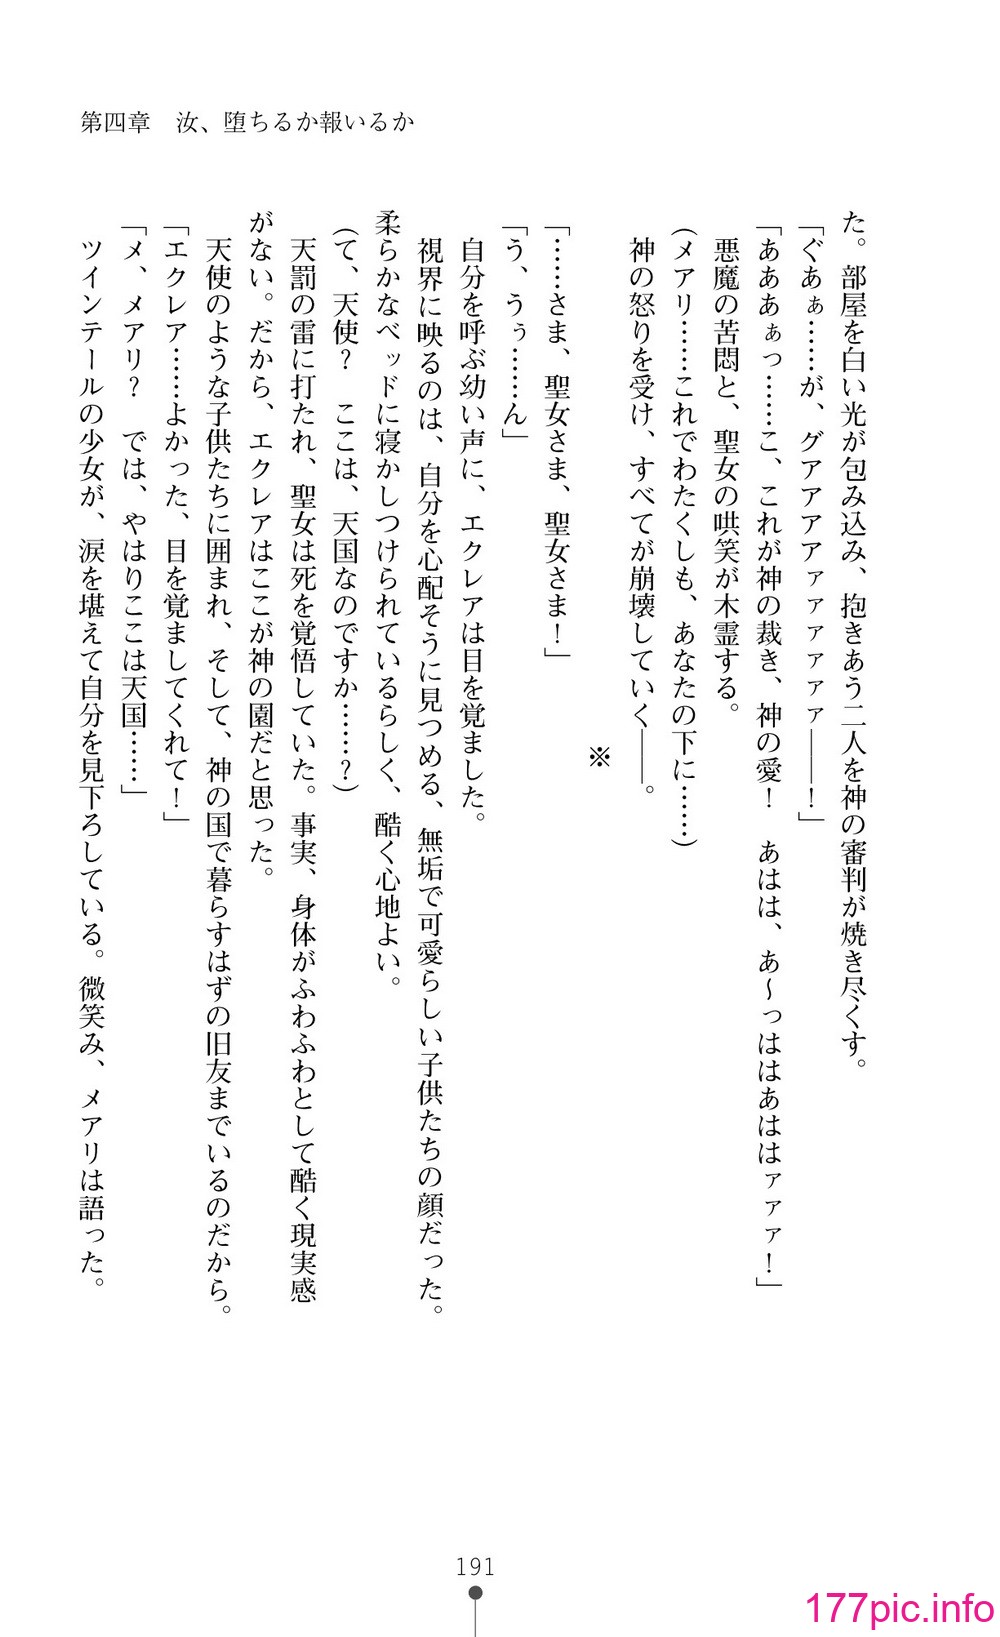 第四章　汝、堕ちるか報いるか
た。部屋を白い光が包み込み、抱きあう二人を神の審判が焼き尽くす。
「ぐあぁ……が、グアアアァァァァァ――！」
「あああぁっ……こ、これが神の裁き、神の愛！　あはは、あ～っははあははァァァ！」
悪魔の苦悶と、聖女の哄笑が木霊する。
(メアリ……これでわたくしも、あなたの下に……)
神の怒りを受け、すべてが崩壊していく――。
※
「……さま、聖女さま、聖女さま！」
「う、うぅ……ん」
自分を呼ぶ幼い声に、エクレアは目を覚ました。
視界に映るのは、自分を心配そうに見つめる、無垢で可愛らしい子供たちの顔だった。
柔らかなベッドに寝かしつけられているらしく、酷く心地よい。
(て、天使？　ここは、天国なのですか……？)
天罰の雷に打たれ、聖女は死を覚悟していた。事実、身体がふわふわとして酷く現実感
がない。だから、エクレアはここが神の園だと思った。
天使のような子供たちに囲まれ、そして、神の国で暮らすはずの旧友までいるのだから。
「エクレア……よかった、目を覚ましてくれて！」
「メ、メアリ？　では、やはりここは天国……」
ツインテールの少女が、涙を堪えて自分を見下ろしている。微笑み、メアリは語った。
191
177pic.info